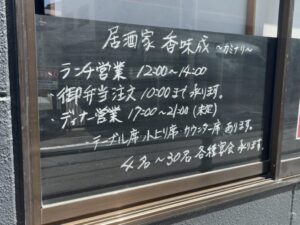 居酒家 香味成 ～カミナリ～
ランチ営業 12:00～14:00
・御弁当注文 10:00まで承ります。
・ディナー営業 17:00～21:00 (未定)
・テーブル席 小上り席 カウンター席 あります。
4名～30名 各種宴会 承ります。